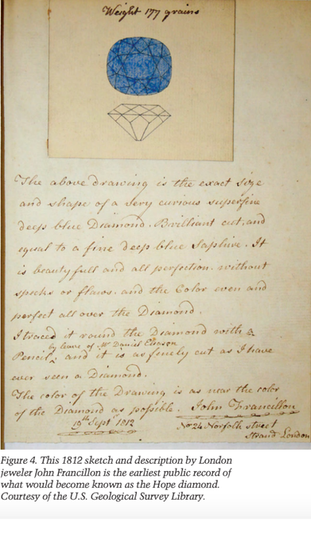 Weight 177 grains
The above drawing is the exact size
and shape of a very curious superfine
deep blue Diamond. Brilliant cut, and
equal to a fine deep blue Saphire. It
is beautyfull and all perfection without
specks or flaws, and the Color even and
perfect all over the Diamond.
I traced it round the Diamond with a
by leave of Mr Daniel Eliason
Pencil, and it is as finely cut as I have
ever seen a Diamond.
The color of the Drawing is as near the color
of the Diamond as possible.
John Francillon
19th Sept 1812
No 24 Norfolk street
Strand London
Figure 4. This 1812 sketch and description by London
jeweler John Francillon is the earliest public record of
what would become known as the Hope diamond.
Courtesy of the U.S. Geological Survey Library.